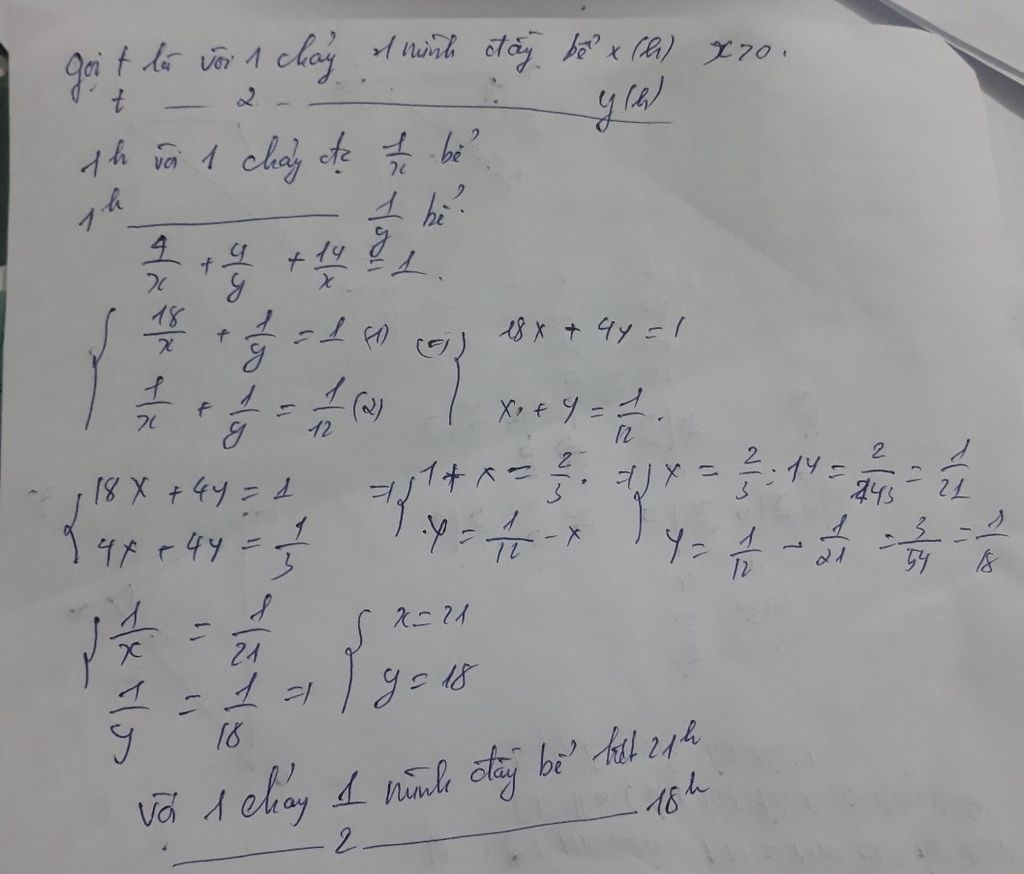 Gọi t là vòi 1 chảy 1 mình đầy bể x (h) x>0.
t — 2 - —— y (h)
1h vòi 1 chảy đc 1/x bể
1h —— 1/y bể.
4/x + 4/y + 14/x = 1.
{ 18/x + 1/y = 1 (1) (=) { 18X + 4Y = 1
1/x + 1/y = 1/12 (2) X + Y = 1/12.
{ 18X + 4Y = 1 =) { 14 X = 2/3. =) { X = 2/3 : 14 = 2/143 = 1/21
4X + 4Y = 1/3 Y = 1/12 - X Y = 1/12 - 1/21 = 3/54 = 1/18
{ 1/x = 1/21 { x = 21
1/y = 1/18 =) y = 18
Vòi 1 chảy 1 mình đầy bể hết 21h
—— 2 —— 18h